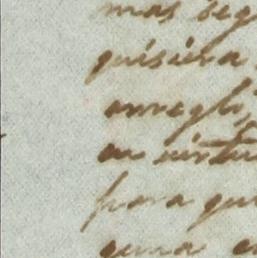 mas seg
quisiera
arreglo,
en virtu
para qu